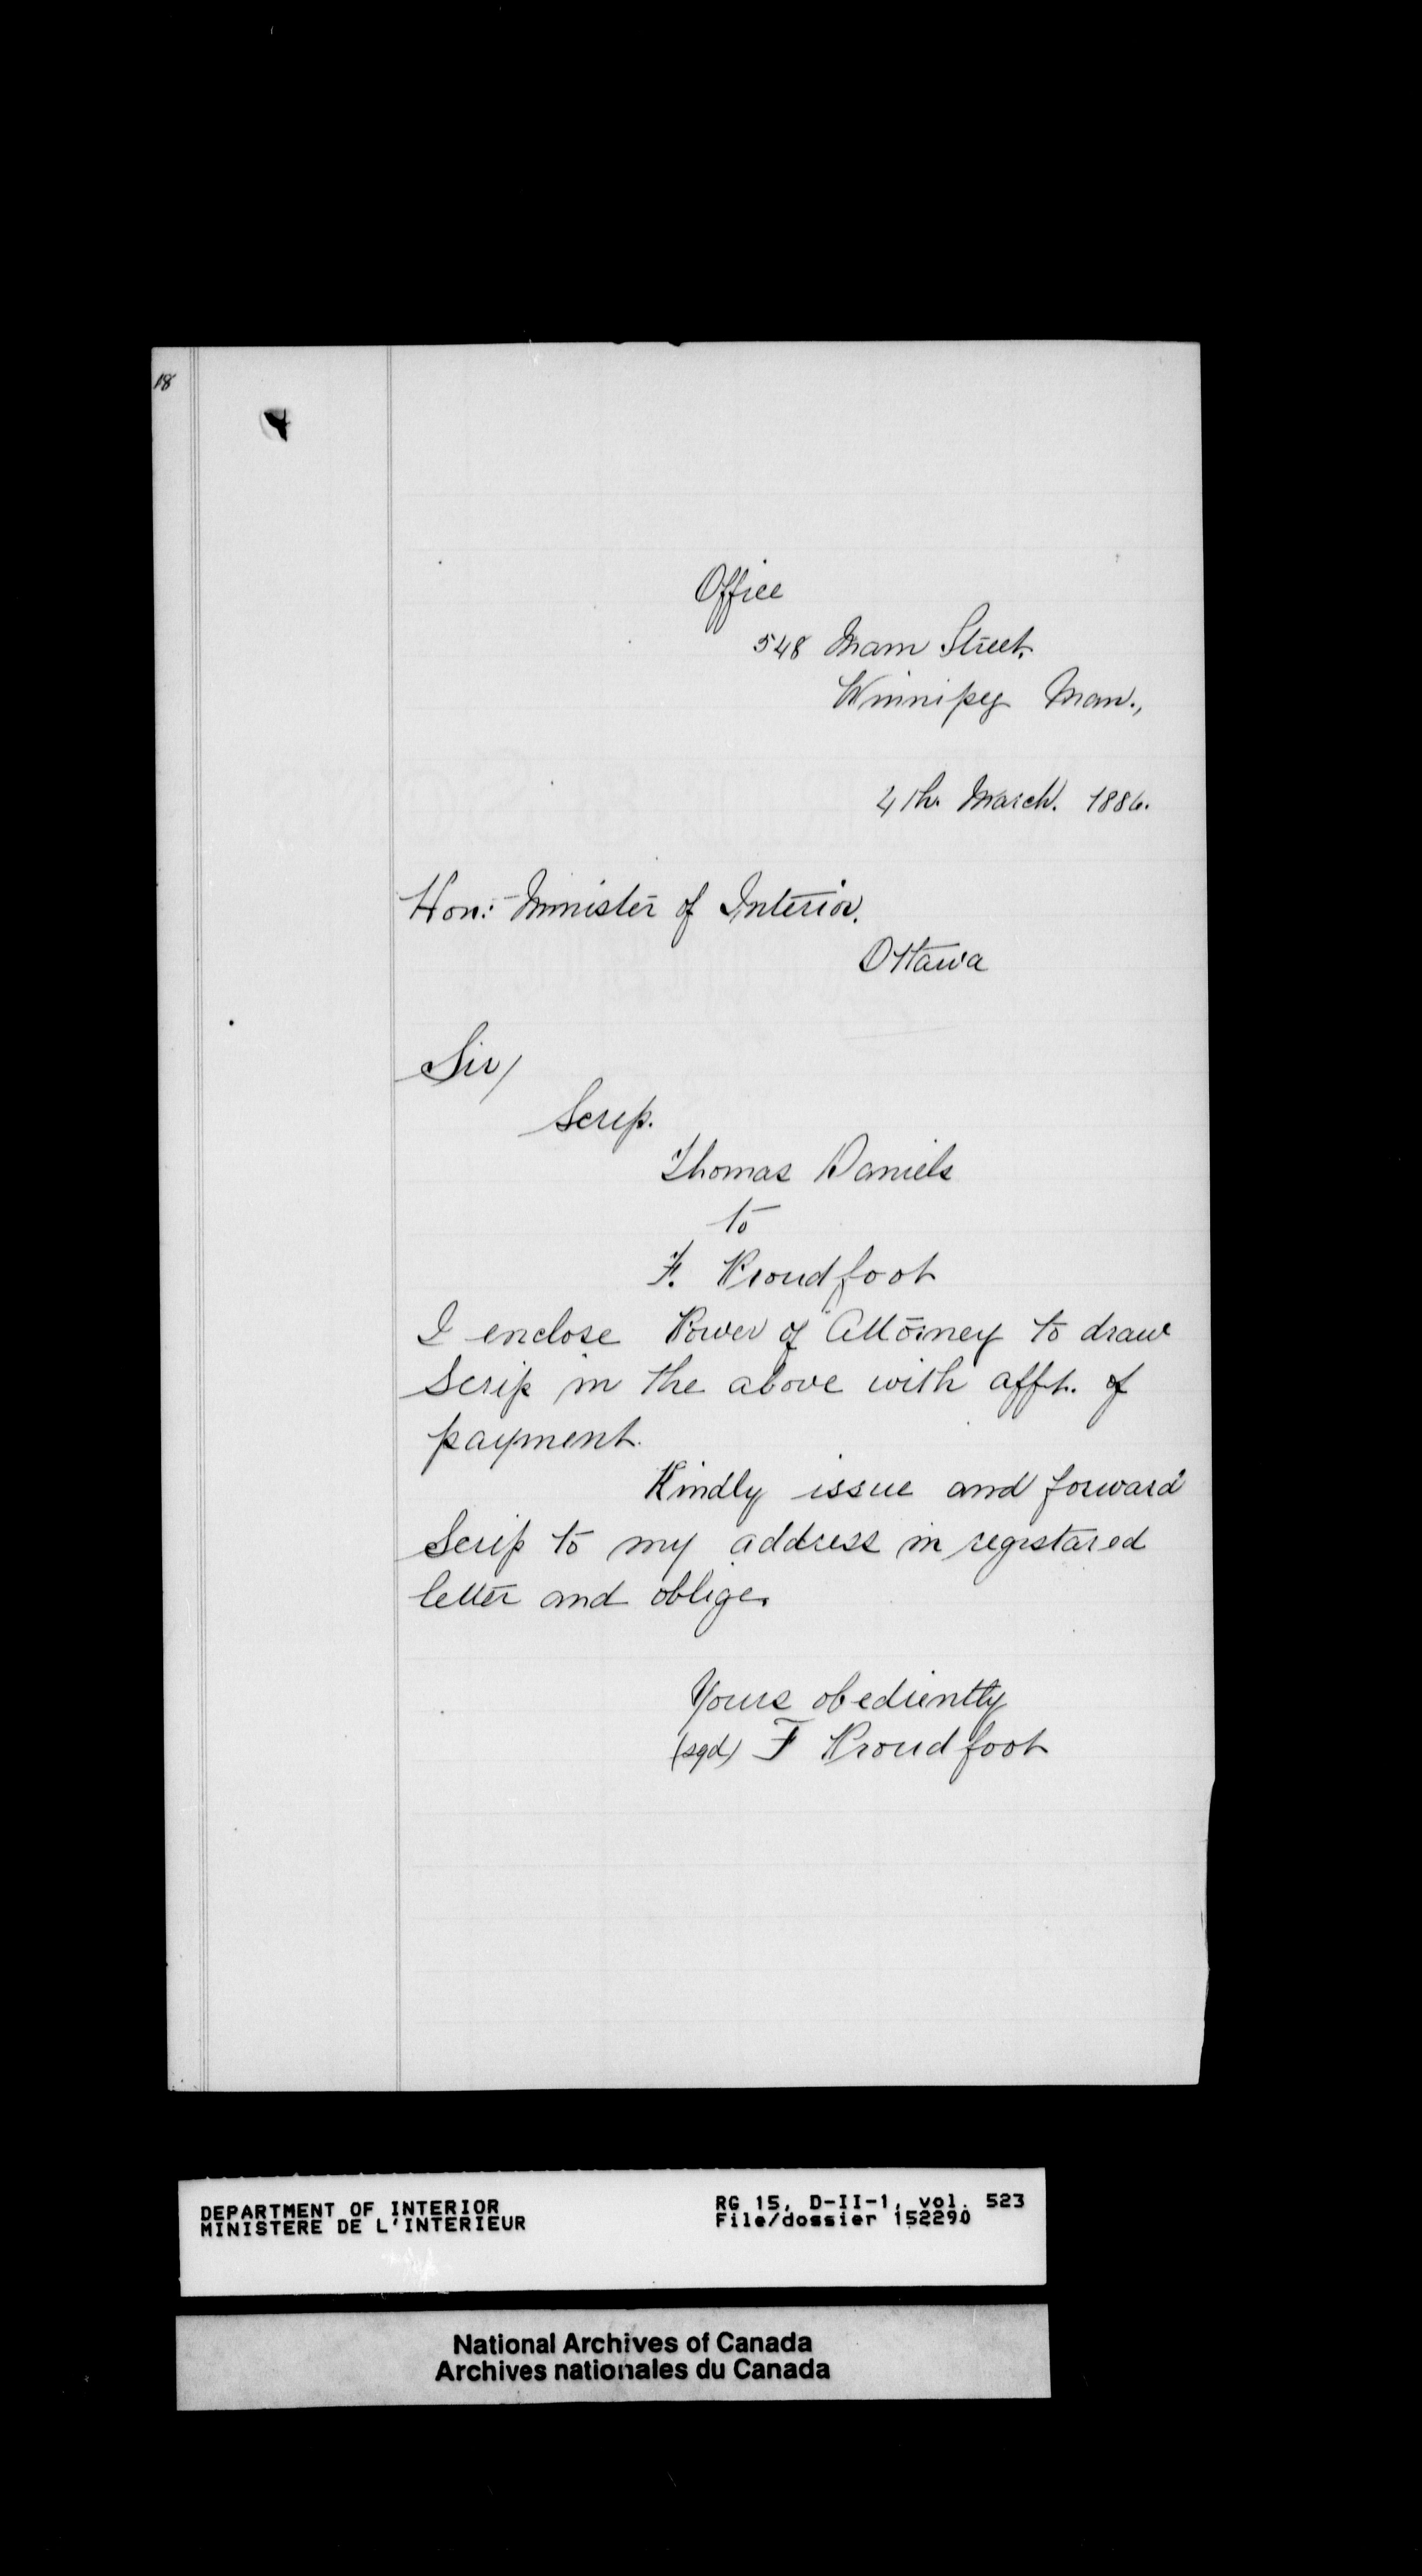 18
Office
548 Main Street.
Winnipeg Man.,
4th. March. 1886.
Hon:- Minister of Interior.
Ottawa
Sir/
Scrip.
Thomas Daniels
to
F. Proudfoot
I enclose Power of Attorney to draw
Scrip in the above with afft. of
payment.
Kindly issue and forward
Scrip to my address in registared
letter and oblige.
Yours obediently
(sgd) F Proudfoot
DEPARTMENT OF INTERIOR
MINISTERE DE L'INTERIEUR
RG 15, D-II-1, vol. 523
File/dossier 152290
National Archives of Canada
Archives nationales du Canada